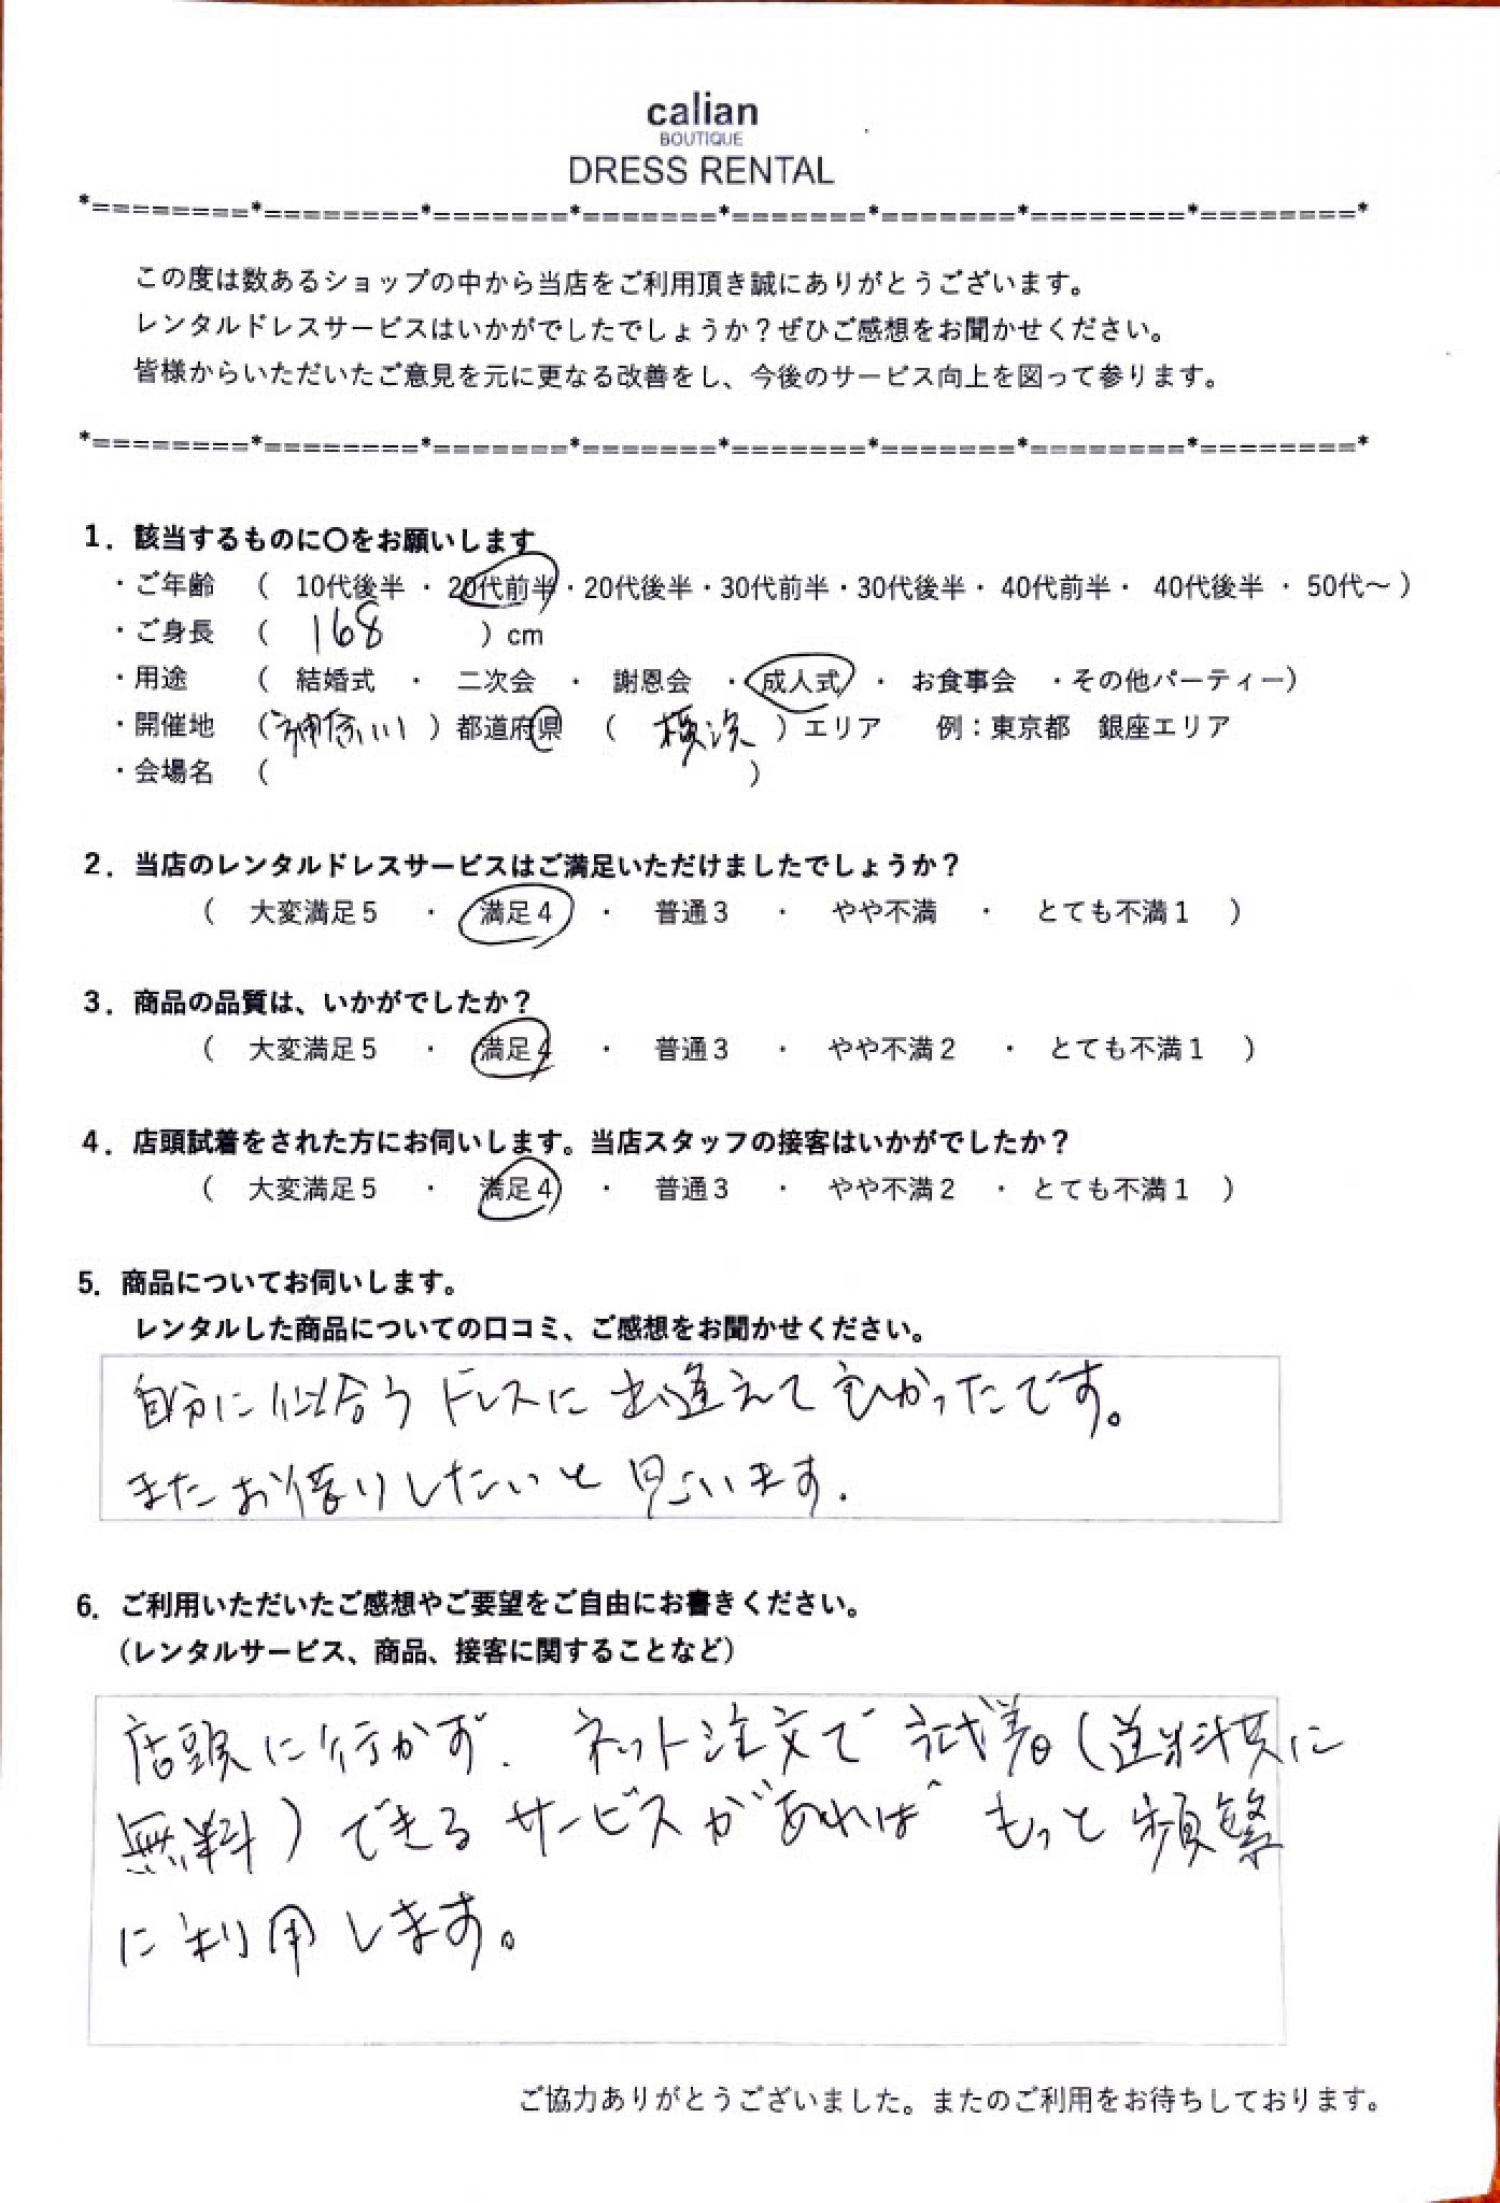 calian
BOUTIQUE
DRESS RENTAL
*========*========*=======*=======*=======*=======*========*========*
この度は数あるショップの中から当店をご利用頂き誠にありがとうございます。
レンタルドレスサービスはいかがでしたでしょうか？ぜひご感想をお聞かせください。
皆様からいただいたご意見を元に更なる改善をし、今後のサービス向上を図って参ります。
*========*========*=======*=======*=======*=======*========*========*
1．該当するものに〇をお願いします
・ご年齢　（　10代後半 ・ 20代前半・20代後半・30代前半・30代後半・ 40代前半・ 40代後半 ・ 50代～ ）
・ご身長　（　168　）cm
・用途　（　結婚式　・　二次会　・　謝恩会　・　成人式　・　お食事会　・その他パーティー）
・開催地　（神奈川）都道府県　（　横浜　）エリア　例：東京都　銀座エリア
・会場名　（　　）
2．当店のレンタルドレスサービスはご満足いただけましたでしょうか？
（　大変満足５　・　満足４　・　普通３　・　やや不満　・　とても不満１　）
3．商品の品質は、いかがでしたか？
（　大変満足５　・　満足４　・　普通３　・　やや不満２　・　とても不満１　）
4．店頭試着をされた方にお伺いします。当店スタッフの接客はいかがでしたか？
（　大変満足５　・　満足４　・　普通３　・　やや不満２　・ とても不満１　）
5．商品についてお伺いします。
レンタルした商品についての口コミ、ご感想をお聞かせください。
自分に似合うドレスに出逢えて良かったです。
またお借りしたいと思います.
6．ご利用いただいたご感想やご要望をご自由にお書きください。
（レンタルサービス、商品、接客に関することなど）
店頭に行かず、ネット注文で試着（送料共に
無料）できるサービスがあればもっと頻繁
に利用します。
ご協力ありがとうございました。またのご利用をお待ちしております。